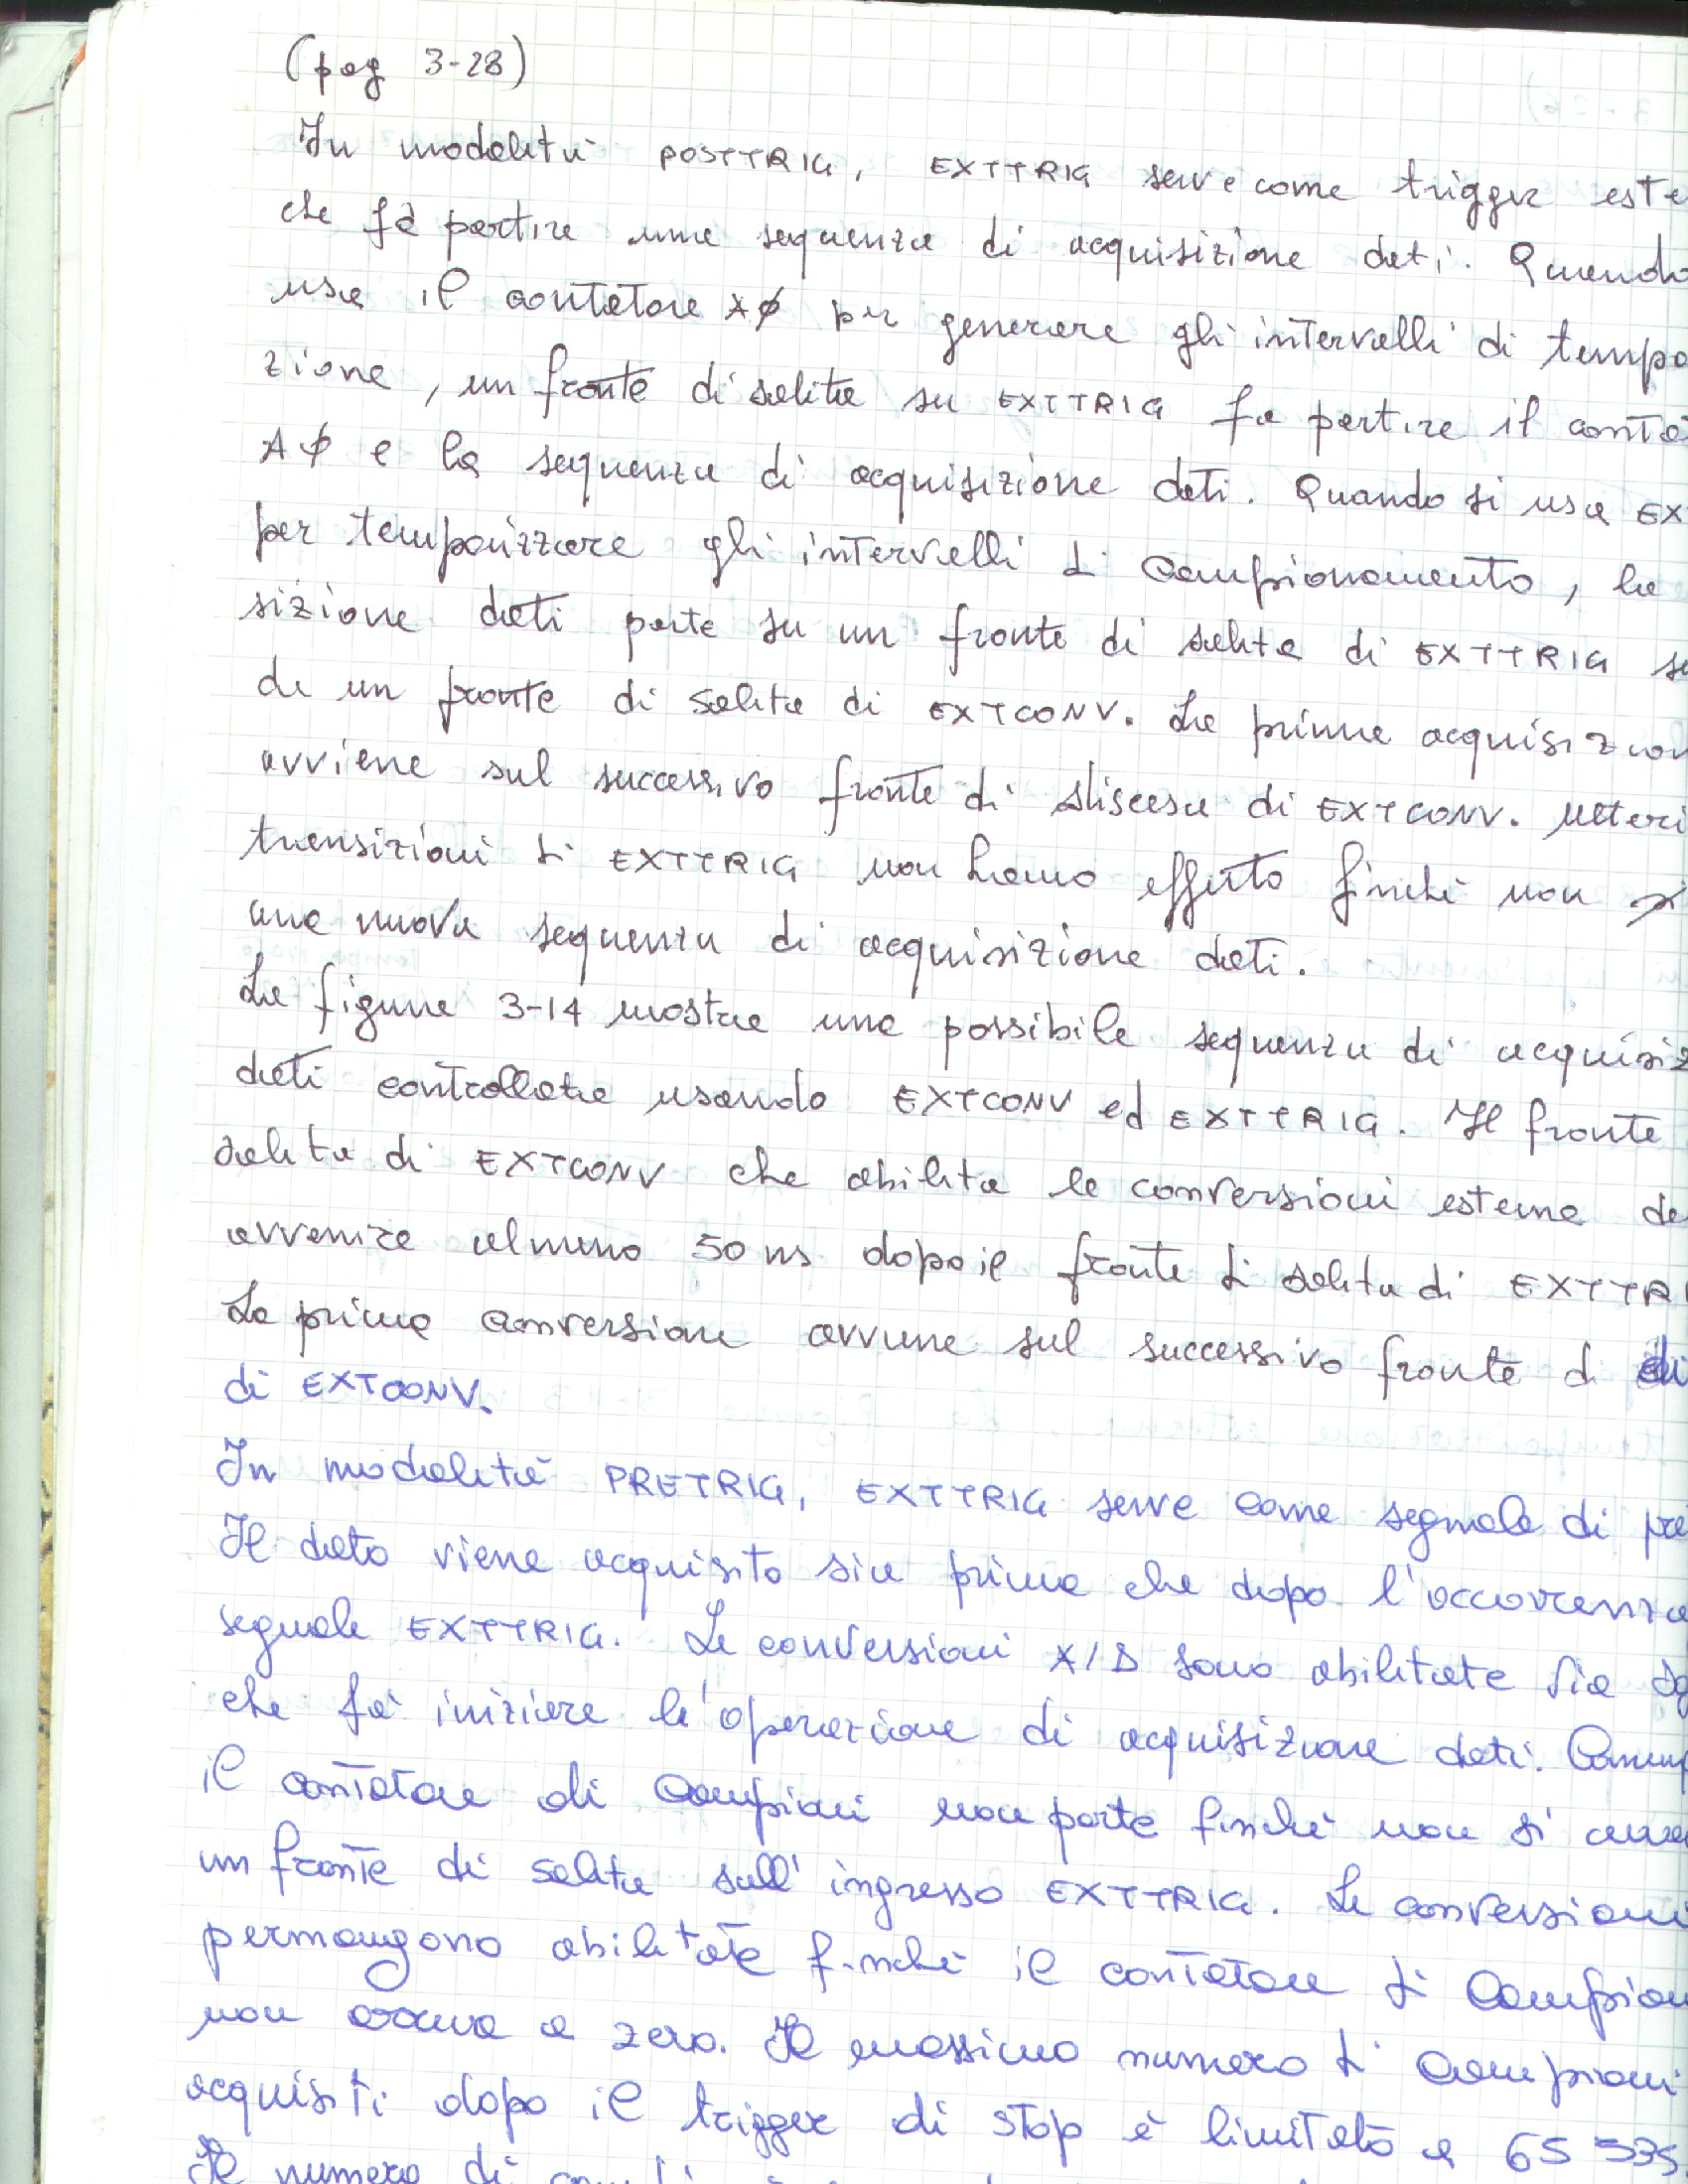 (pag 3-28)
In modalità POSTTRIG, EXTTRIG serve come trigger este
che fà partire una sequenza di acquisizione dati. Quando
usa il contatore A0 per generare gli intervalli di tempo
zione, un fronte di salita su EXTTRIG fa partire il conta
A0 e la sequenza di acquisizione dati. Quando si usa EX
per temporizzare gli intervalli di campionamento, la
sizione dati parte su un fronte di salita di EXTTRIG se
da un fronte di salita di EXTCONV. La prima acquisizion
avviene sul successivo fronte di discesa di EXTCONV. Ulteri
transizioni di EXTTRIG non hanno effetto finchè non
una nuova sequenza di acquisizione dati.
La figura 3-14 mostra una possibile sequenza di acquisiz
dati controllata usando EXTCONV ed EXTTRIG. Il fronte
salita di EXTCONV che abilita le conversioni esterne de
avvenire almeno 50 ns dopo il fronte di salita di EXTTRI
La prima conversione avviene sul successivo fronte di di
di EXTCONV.
In modalità PRETRIG, EXTTRIG serve come segnale di pre
Il dato viene acquisito sia prima che dopo l'occorrenza
segnale EXTTRIG. Le conversioni A/D sono abilitate via
che fà iniziare l'operazione di acquisizione dati. Comun
il contatore di campioni non parte finchè non si
un fronte di salita sull'ingresso EXTTRIG. Le conversioni
permangono abilitate finchè il contatore di campion
non arriva a zero. Il massimo numero di campioni
acquisiti dopo il trigger di stop è limitato a 65535
Il numero di